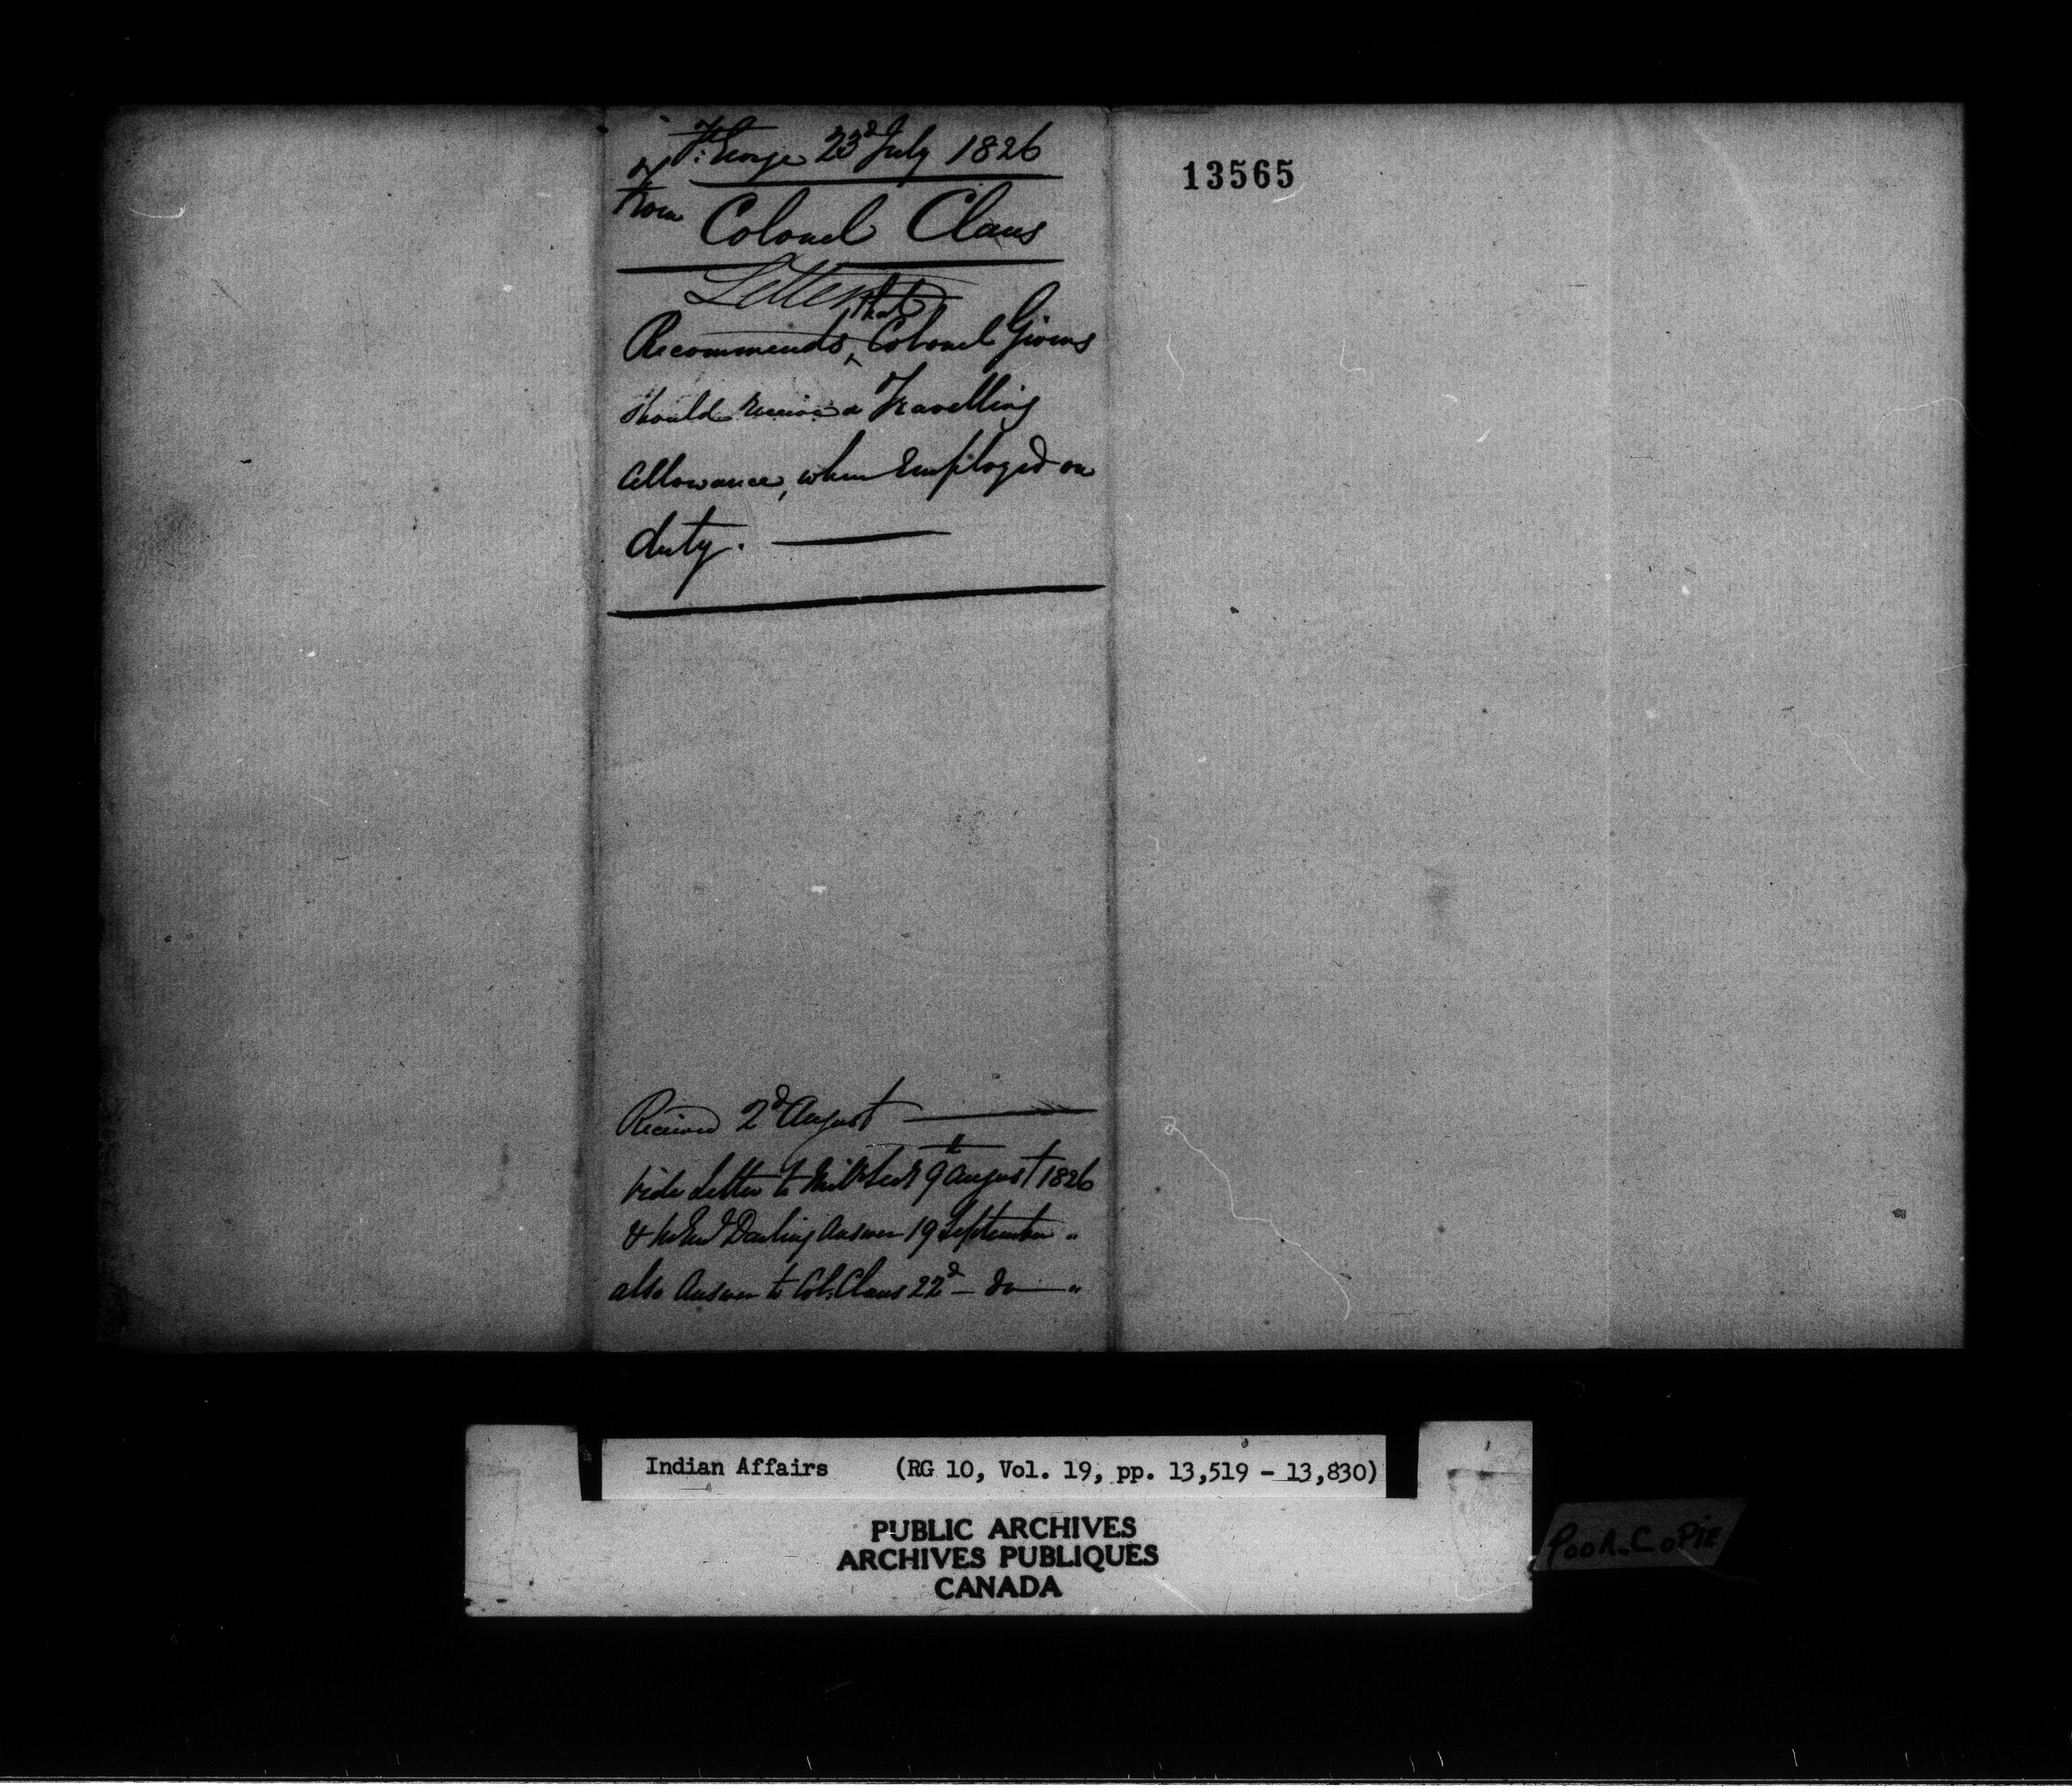 Ft: George 23d July 1826
From Colonel Claus
Letter
that
Recommends Colonel Givins
should receive a Travelling
Allowance, when Employed on
duty.
Received 2d August
Vide Letter to Mily Secy 9th August 1826
& Darling Answer 19 September "
also Answer to Col. Claus 22d - do - "
13565
Indian Affairs (RG 10, Vol. 19, pp. 13,519 - 13,830)
PUBLIC ARCHIVES
ARCHIVES PUBLIQUES
CANADA
POOR COPIE